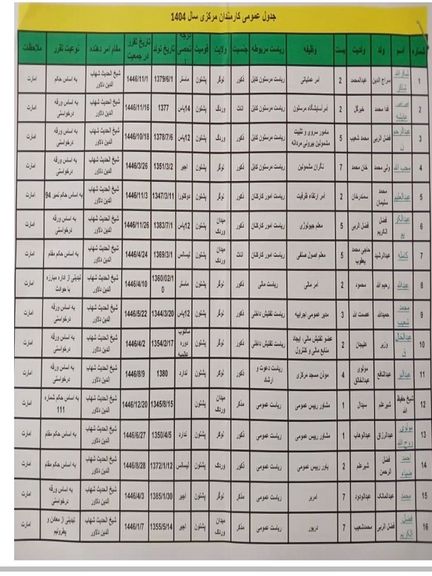 جدول عمومی کارمندان مرکزی سال 1404
شماره اسم ولد ولدیت بست وظیفه ریاست مربوطه جنسیت ولایت قومیت درجه تحصیلی تاریخ تولد تاریخ تقرر در جمعیت مقام امر دهنده نوعیت تقرر ملاحظات
1 سراج الدین عبدالمحمد 2 امر عملیاتی ریاست مرستون کابل ذکور لوگر پشتون ماستر 1379/6/1 1446/11/1 شیخ الحدیث شهاب الدین دلاور به اساس حکم امارت
2 فدا محمد خیرگل 2 ریاست مرستون کابل اناث وردک پشتون 14پاس 1377 1446/11/16 شیخ الحدیث شهاب الدین دلاور به اساس ورقه درخواستی امارت
3 فضل الربی محمد شعیب 5 ریاست مرستون کابل ذکور وردک پشتون 12پاس 1378/7/6 1446/10/18 شیخ الحدیث شهاب الدین دلاور به اساس ورقه درخواستی امارت
4 محب الله ولی محمد خان محمد 7 نگران مشمولین ریاست مرستون کابل ذکور لوگر پشتون 1351/3/2 1446/3/26 شیخ الحدیث شهاب الدین دلاور به اساس ورقه درخواستی امارت
5 عبدالعلیم محمد سلیمان 2 امر ارتقاء ظرفیت ریاست امور کارکنان ذکور لوگر پشتون 1347/3/11 1446/11/3 شیخ الحدیث شهاب الدین دلاور به اساس حکم نمبر 94 امارت
6 فضل الکریم فضل الربی 5 ریاست امور کارکنان ذکور میدان وردک پشتون 12پاس 1383/7/1 1446/11/26 شیخ الحدیث شهاب الدین دلاور به اساس ورقه درخواستی امارت
7 عبدالرشید حاجی محمد یعقوب 5 معلم اصول صنفی ریاست امور کارکنان اناث میدان وردک پشتون لیسانس 1369/3/1 1446/4/24 شیخ الحدیث شهاب الدین دلاور به اساس حکم مقام امارت
8 عبدالله رحیم الله محمود 2 امر مالی ریاست مالی ذکور لوگر پشتون ماستر 1360/02/10 1446/4/10 شیخ الحدیث شهاب الدین دلاور تبدیلی از اداره مبارزه با حوادث امارت
9 محمد شعیب حمیدالله عصمت الله 3 مدیر عمومی اجرائیه ریاست تفتیش داخلی ذکور لوگر پشتون 12پاس 1344/3/20 1446/5/22 شیخ الحدیث شهاب الدین دلاور به اساس ورقه درخواستی امارت
10 وزیر علیجان 2 عضو تفتیش مالی، ایجاد منابع مالی و کنترول ریاست تفتیش داخلی ذکور لوگر پشتون 1354/2/17 1446/4/2 شیخ الحدیث شهاب الدین دلاور به اساس ورقه درخواستی امارت
11 عبدالنافع مولوی عبدالخالق 4 موذن مسجد مرکزی ریاست دعوت و ارشاد ذکور لوگر پشتون ندارد 1380 1446/8/9 شیخ الحدیث شهاب الدین دلاور به اساس ورقه درخواستی امارت
12 شیخ حفیظ الله شیرعلم سیدال 1 مشاور رییس عمومی ریاست عمومی مذکر میدان وردک پشتون 1345/8/15 1446/12/20 شیخ الحدیث شهاب الدین دلاور به اساس حکم شماره 111 امارت
13 مولوی روح الله عبدالرزاق عبدالوهاب 1 مشاور رییس عمومی ریاست عمومی مذکر لوگر پشتون ندارد 1350/4/5 1446/6/27 شیخ الحدیث شهاب الدین دلاور به اساس حکم مقام امارت
14 احمد ضیاء فضل الرحمن شیرعلم 2 یاور رییس عمومی ریاست عمومی مذکر میدان وردک پشتون لیسانس 1372/1/12 1446/8/28 شیخ الحدیث شهاب الدین دلاور به اساس حکم مقام امارت
15 محمد عبدالمالک عبدالودود 7 ریاست عمومی مذکر لوگر پشتون 1385/1/30 1446/4/3 شیخ الحدیث شهاب الدین دلاور به اساس ورقه درخواستی امارت
16 فضل الربی محمدشعیب 7 دریور ریاست عمومی مذکر میدان وردک پشتون 1355/5/14 1446/1/7 شیخ الحدیث شهاب الدین دلاور تبدیلی از معادن و پطرولیم امارت